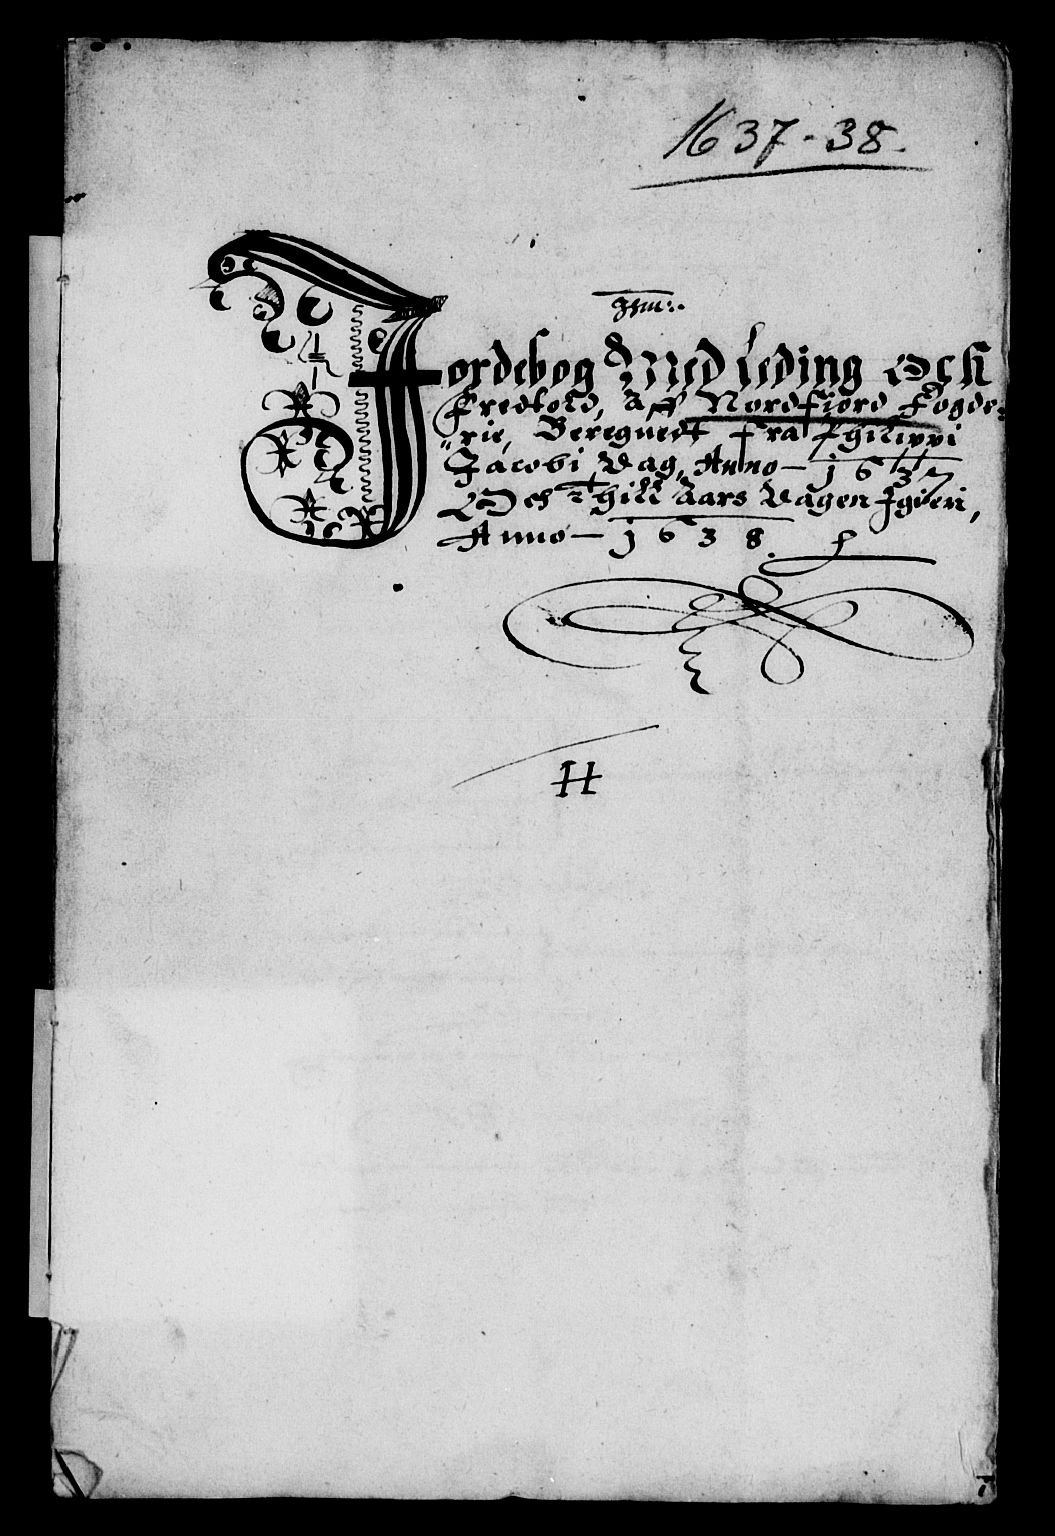 1637-38.
Jordebog Med Leding Och
Fredtold, Aff Nordfiord Fogde-
rie, Beregnedt fra Philippi
Jacobi Dag, Anno 1637
Och Thill Aars Dagen Igien,
Anno 1638
H
7